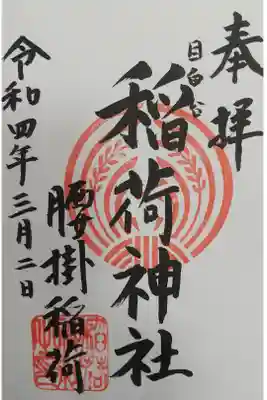 奉拝
目白台
稲荷神社
腰掛稲荷
令和四年三月二日